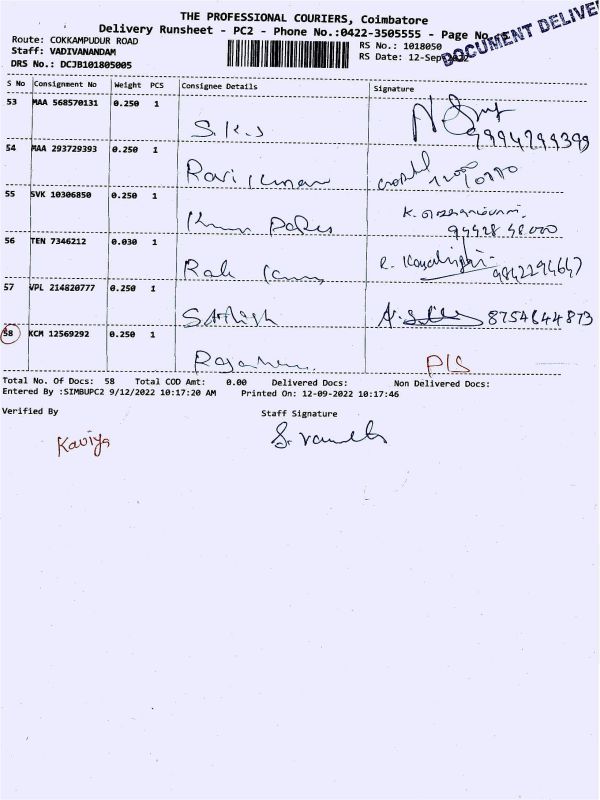 THE PROFESSIONAL COURIERS, Coimbatore
Delivery Runsheet - PC2 - Phone No.:0422-3505555 - Page No.
DOCUMENT DELIVE
Route: COKKAMPUDUR ROAD
RS No.: 1018050
Staff: VADIVANANDAM
RS Date: 12-Sep
DRS No.: DCJB101805005
S No Consignment No Weight PCS Consignee Details Signature
53 MAA 568570131 0.250 1
S.K.S 9994299399
54 MAA 293729393 0.250 1
Ravi Kumar
55 SVK 10306850 0.250 1
99428 48000
56 TEN 7346212 0.030 1
R. 9842294647
57 VPL 214820777 0.250 1
Sathish 8754644873
58 KCM 12569292 0.250 1
P/S
Total No. Of Docs: 58 Total COD Amt: 0.00 Delivered Docs: Non Delivered Docs:
Entered By :SIMBUPC2 9/12/2022 10:17:20 AM Printed On: 12-09-2022 10:17:46
Verified By Staff Signature
Kaviya